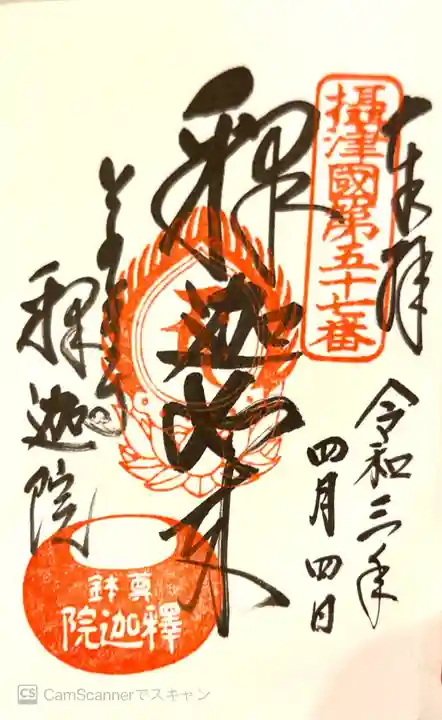 奉拝
攝津國第五十七番
令和三年
四月四日
釈迦如来
釈迦院
尊鉢
釋迦院
CS CamScannerでスキャン